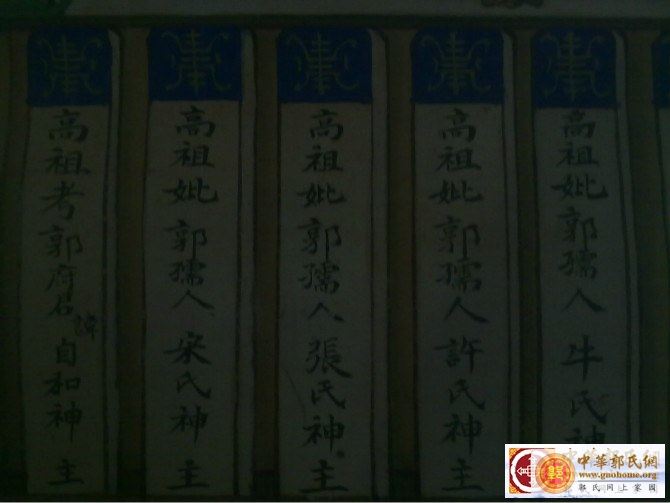 高祖考郭府君諱自和神主
高祖妣郭孺人宋氏神主
高祖妣郭孺人張氏神主
高祖妣郭孺人許氏神主
高祖妣郭孺人牛氏神
中華郭氏網
www.gnohome.org
郭氏网上家園